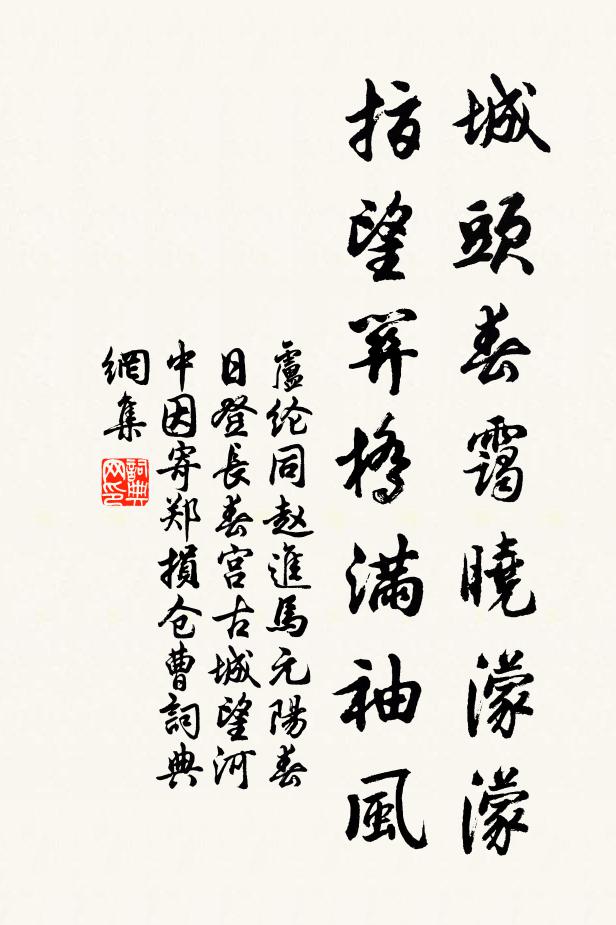 城頭春靄曉濛濛
指望關橋滿袖風
盧纶同赵進馬元陽春
日登長春宮古城望河
中因寄郑損仓曹詞典
網集
詞典
网印